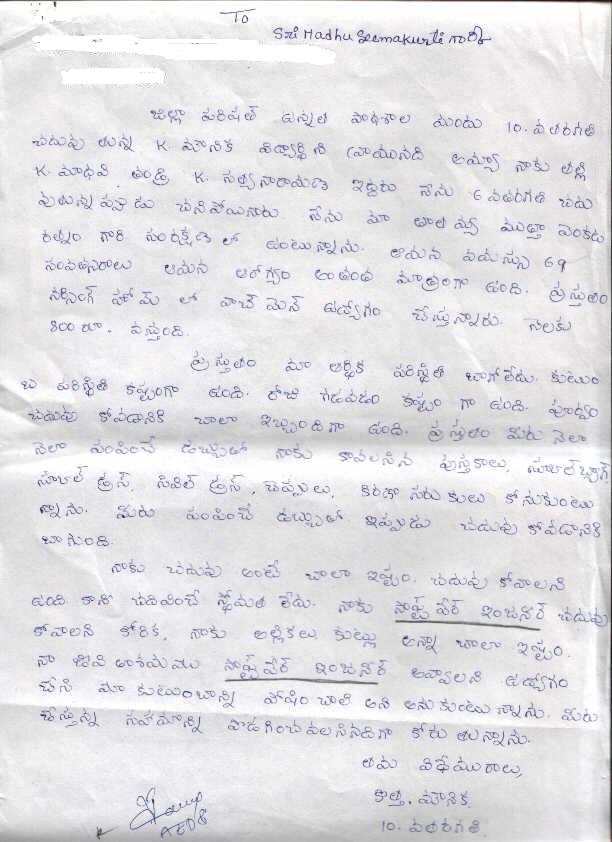 To
Sri Madhu Seemakurti గారికి
జిల్లా పరిషత్ ఉన్నత పాఠశాల నుండు 10. వతరగతి
చదువు తున్న K. మౌనిక విద్యార్థిని వ్రాయునది అయ్యా నాకు తల్లి
K. మాధవి తండ్రి K. సత్యనారాయణ ఇద్దరు నేను 6 వతరగతి చదు
వుతున్నప్పుడు చనిపోయినారు. నేను మా తాతయ్య ముత్తా వెంకటు
రత్నం గారి సంరక్షణ లో ఉంటున్నాను. ఆయన వయస్సు 69
సంవత్సరాలు ఆయన ఆరోగ్యం అంతంత మాత్రంగా ఉంది. ప్రస్తుతం
నర్సింగ్ హోమ్ లో వాచ్ మెన్ ఉద్యోగం చేస్తున్నారు. నెలకు
800 రూ. వస్తుంది.
ప్రస్తుతం మా ఆర్థిక పరిస్థితి బాగోలేదు. కుటుం
బ పరిస్థితి కష్టంగా ఉంది. రోజు గడపడం కష్టం గా ఉంది. పూర్వం
చదువు కోవడానికి చాలా ఇబ్బందిగా ఉంది. ప్రస్తుతం మీరు నెల
నెలా పంపించే డబ్బుతో నాకు కావలసిన పుస్తకాలు, స్కూల్ బ్యాగ్,
స్కూల్ డ్రస్, సివిల్ డ్రస్, చెప్పులు, కిరాణా సరుకులు కోనుకుంటు
న్నాను. మీరు పంపించే డబ్బుతో ఇప్పుడు చదువు కోవడానికి
బాగుంది.
నాకు చదువు అంటే చాలా ఇష్టం. చదువు కోవాలని
ఉంది కాని చదివించే స్థోమత లేదు. నాకు సాఫ్ట్ వేర్ ఇంజనీర్ చదువు
కోవాలని కోరిక, నాకు అల్లికలు కుట్లు అన్నా చాలా ఇష్టం.
నా జీవిత ఆశయము సాఫ్ట్ వేర్ ఇంజనీర్ అవ్వాలని ఉద్యోగం
చేసి మా కుటుంబాన్ని పోషించాలి అని అనుకుంటున్నాను. మీరు
చేస్తున్న సహయాన్ని పొడగించవలసినదిగా కోరు తున్నాను.
తమ విధేయురాలు,
కొత్త. మౌనిక.
10. వతరగతి.